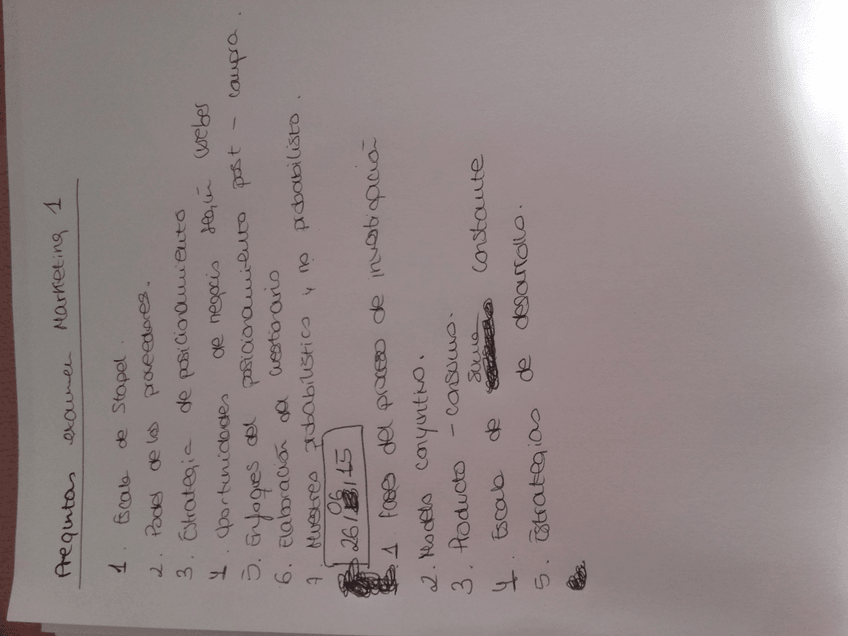 Preguntas examen Marketing 1
1. Escala de Stapel.
2. Poder de los proveedores.
3. Estrategia de posicionamiento
4. Oportunidades de negocio según Weber
5. Enfoques del posicionamiento post - compra.
6. Elaboración del cuestionario
7. Muestreo probabilístico y no probabilisto.
26/06/15
1 Fases del proceso de investigación
2. Modelo conyuntivo.
3. Producto - consumo.
4. Escala de suma constante
5. Estrategias de desarrollo.